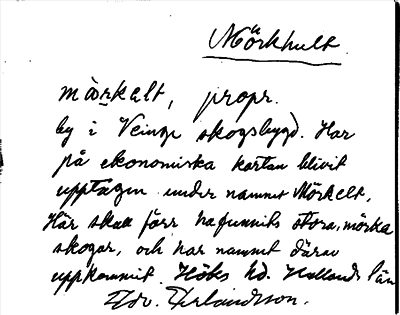 Mörkhult
mörkelt, propr.
by i Veinge skogsbygd. Har
på ekonomiska kartan blivit
upptagen under namnet Mörkelt.
Här skall förr ha funnits stora, mörka
skogar, och har namnet därav
uppkommit. Höks hd. Hallands län
Edv. Erlandsson.